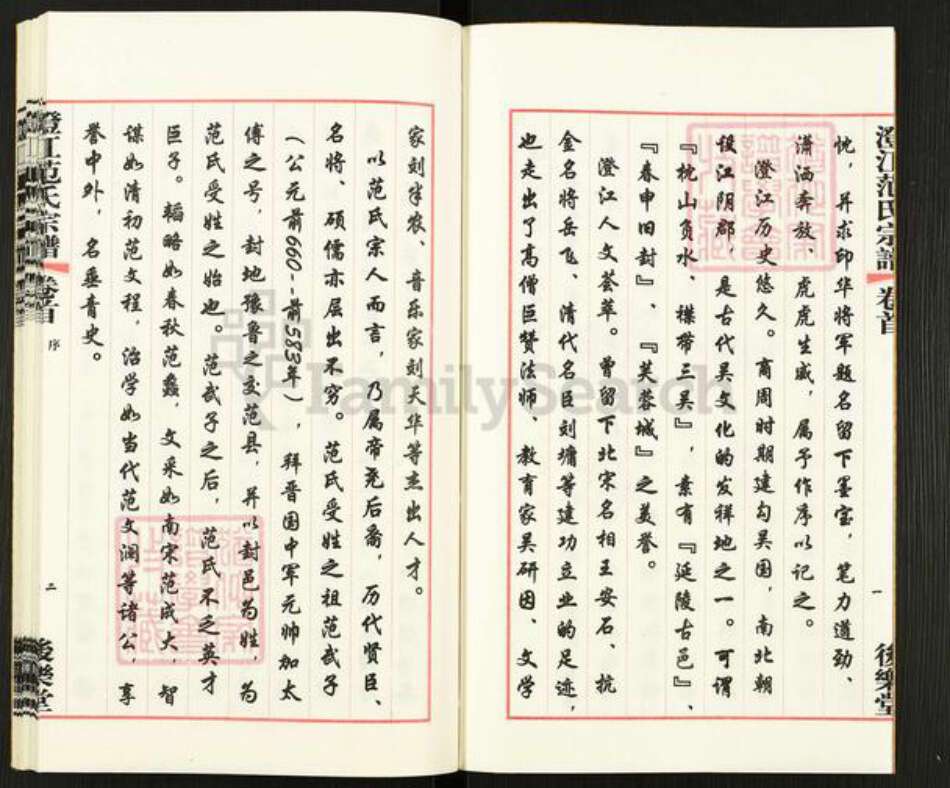 澄江范氏宗譜 卷首
一
後樂堂
忱，并求印华将军题名留下墨宝，笔力遒劲、
潇洒奔放、虎虎生威，属予作序以记之。
澄江历史悠久。商周时期建勾吴国，南北朝
设江阴郡，是古代吴文化的发祥地之一。可谓
『枕山负水、襟带三吴』，素有『延陵古邑』、
『春申旧封』、『芙蓉城』之美誉。
澄江人文荟萃。曾留下北宋名相王安石、抗
金名将岳飞、清代名臣刘墉等建功立业的足迹，
也走出了高僧巨赞法师、教育家吴研因、文学
家刘半农、音乐家刘天华等杰出人才。
以范氏宗人而言，乃属帝尧后裔，历代贤臣、
名将、硕儒亦层出不穷。范氏受姓之祖范武子
（公元前660-前583年），拜晋国中军元帅加太
傅之号，封地豫鲁之交范县，并以封邑为姓，为
范氏受姓之始也。范武子之后，范氏不乏英才
巨子。韬略如春秋范蠡，文采如南宋范成大，智
谋如清初范文程，治学如当代范文澜等诸公，享
誉中外，名垂青史。
澄江范氏宗譜 卷首 序
二
後樂堂
FamilySearch